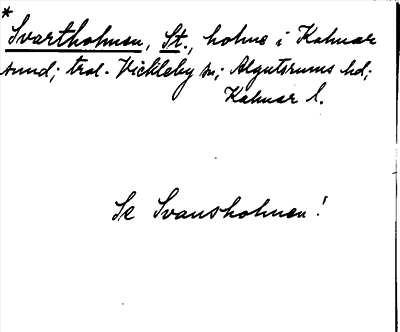 *
Svartholmen, St., holme i Kalmar
sund; trol. Vickleby sn; Algutsrums hd;
Kalmar l.
Se Svansholmen!